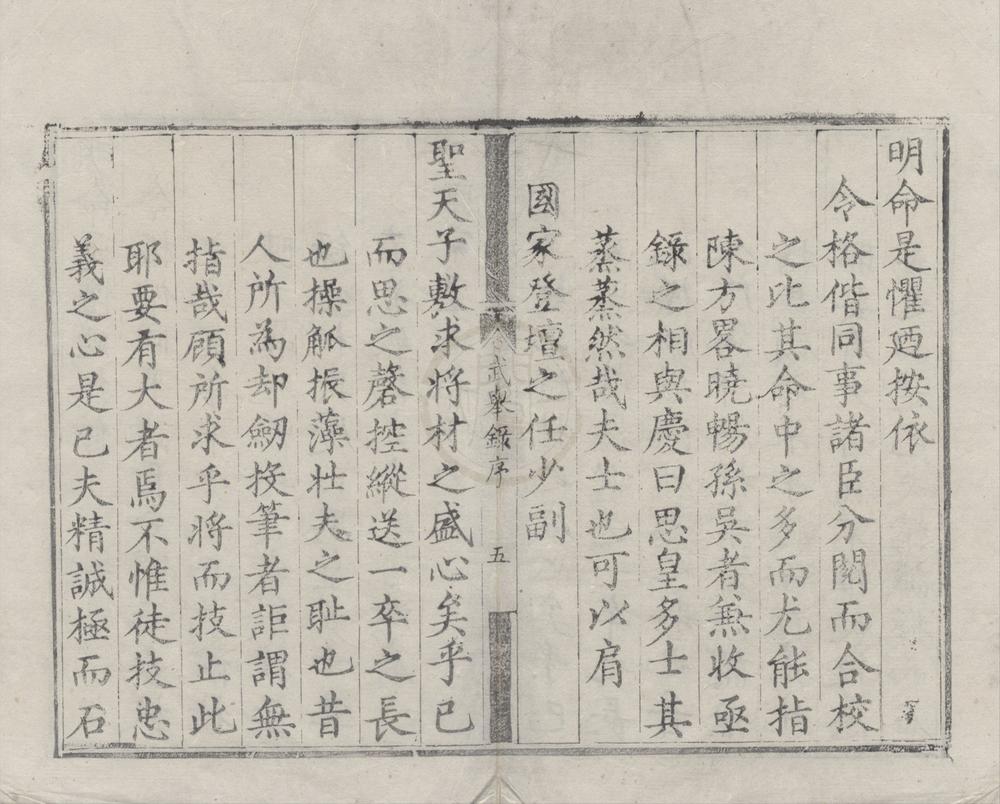 明命是懼廼按依
令格偕同事諸臣分閱而合校
之比其命中之多而尤能指
陳方畧曉暢孫吳者兼收亟
錄之相與慶曰思皇多士其
蒸蒸然哉夫士也可以肩
國家登壇之任少副
武舉錄序
五
聖天子敷求將材之盛心矣乎已
而思之磬控縱送一卒之長
也操觚振藻壯夫之恥也昔
人所為却劒投筆者詎謂無
指哉顧所求乎將而技止此
耶要有大者焉不惟徒技忠
義之心是已夫精誠極而石